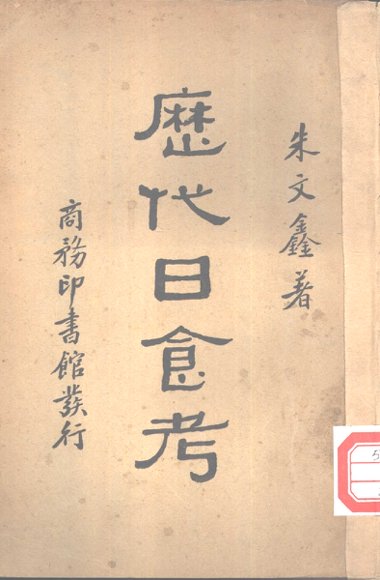 朱文鑫著
歷代日食考
商務印書館發行
5